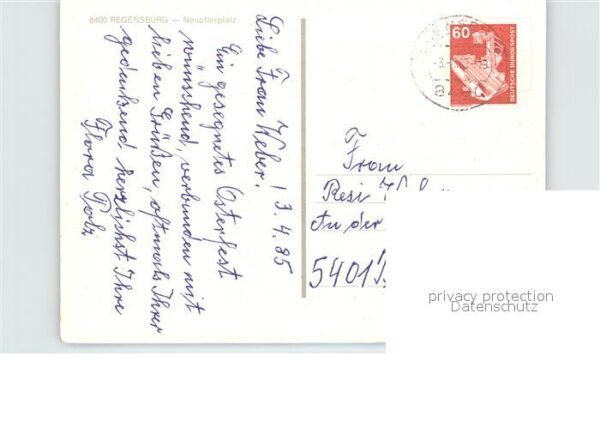 8400 REGENSBURG — Neupfarrplatz
Liebe Frau Weber! 3.4.85
Ein gesegnetes Osterfest
wünschend, verbunden mit
lieben Grüßen, oftmals Ihrer
gedenkend herzlichst Ihre
Flora
60
DEUTSCHE BUNDESPOST
Frau
Resi
An der
5401
privacy protection
Datenschutz